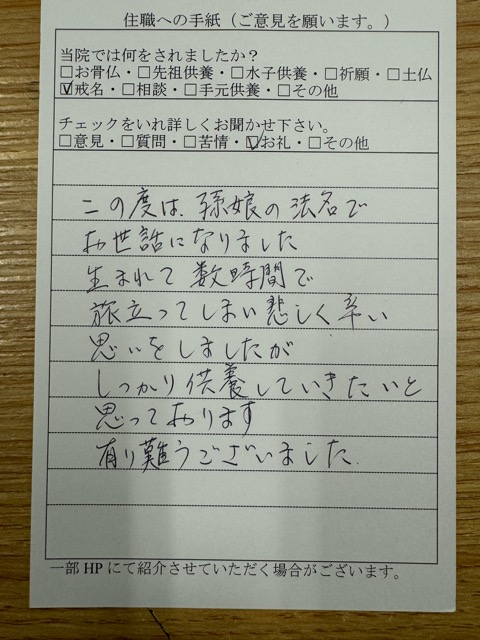 住職への手紙（ご意見を願います。）
当院では何をされましたか？
□お骨仏・□先祖供養・□水子供養・□祈願・□土仏
☑戒名・□相談・□手元供養・□その他
チェックをいれ詳しくお聞かせ下さい。
□意見・□質問・□苦情・☑お礼・□その他
この度は、孫娘の法名で
お世話になりました
生まれて数時間で
旅立ってしまい悲しく辛い
思いをしましたが
しっかり供養していきたいと
思っております
有り難うございました.
一部HPにて紹介させていただく場合がございます。